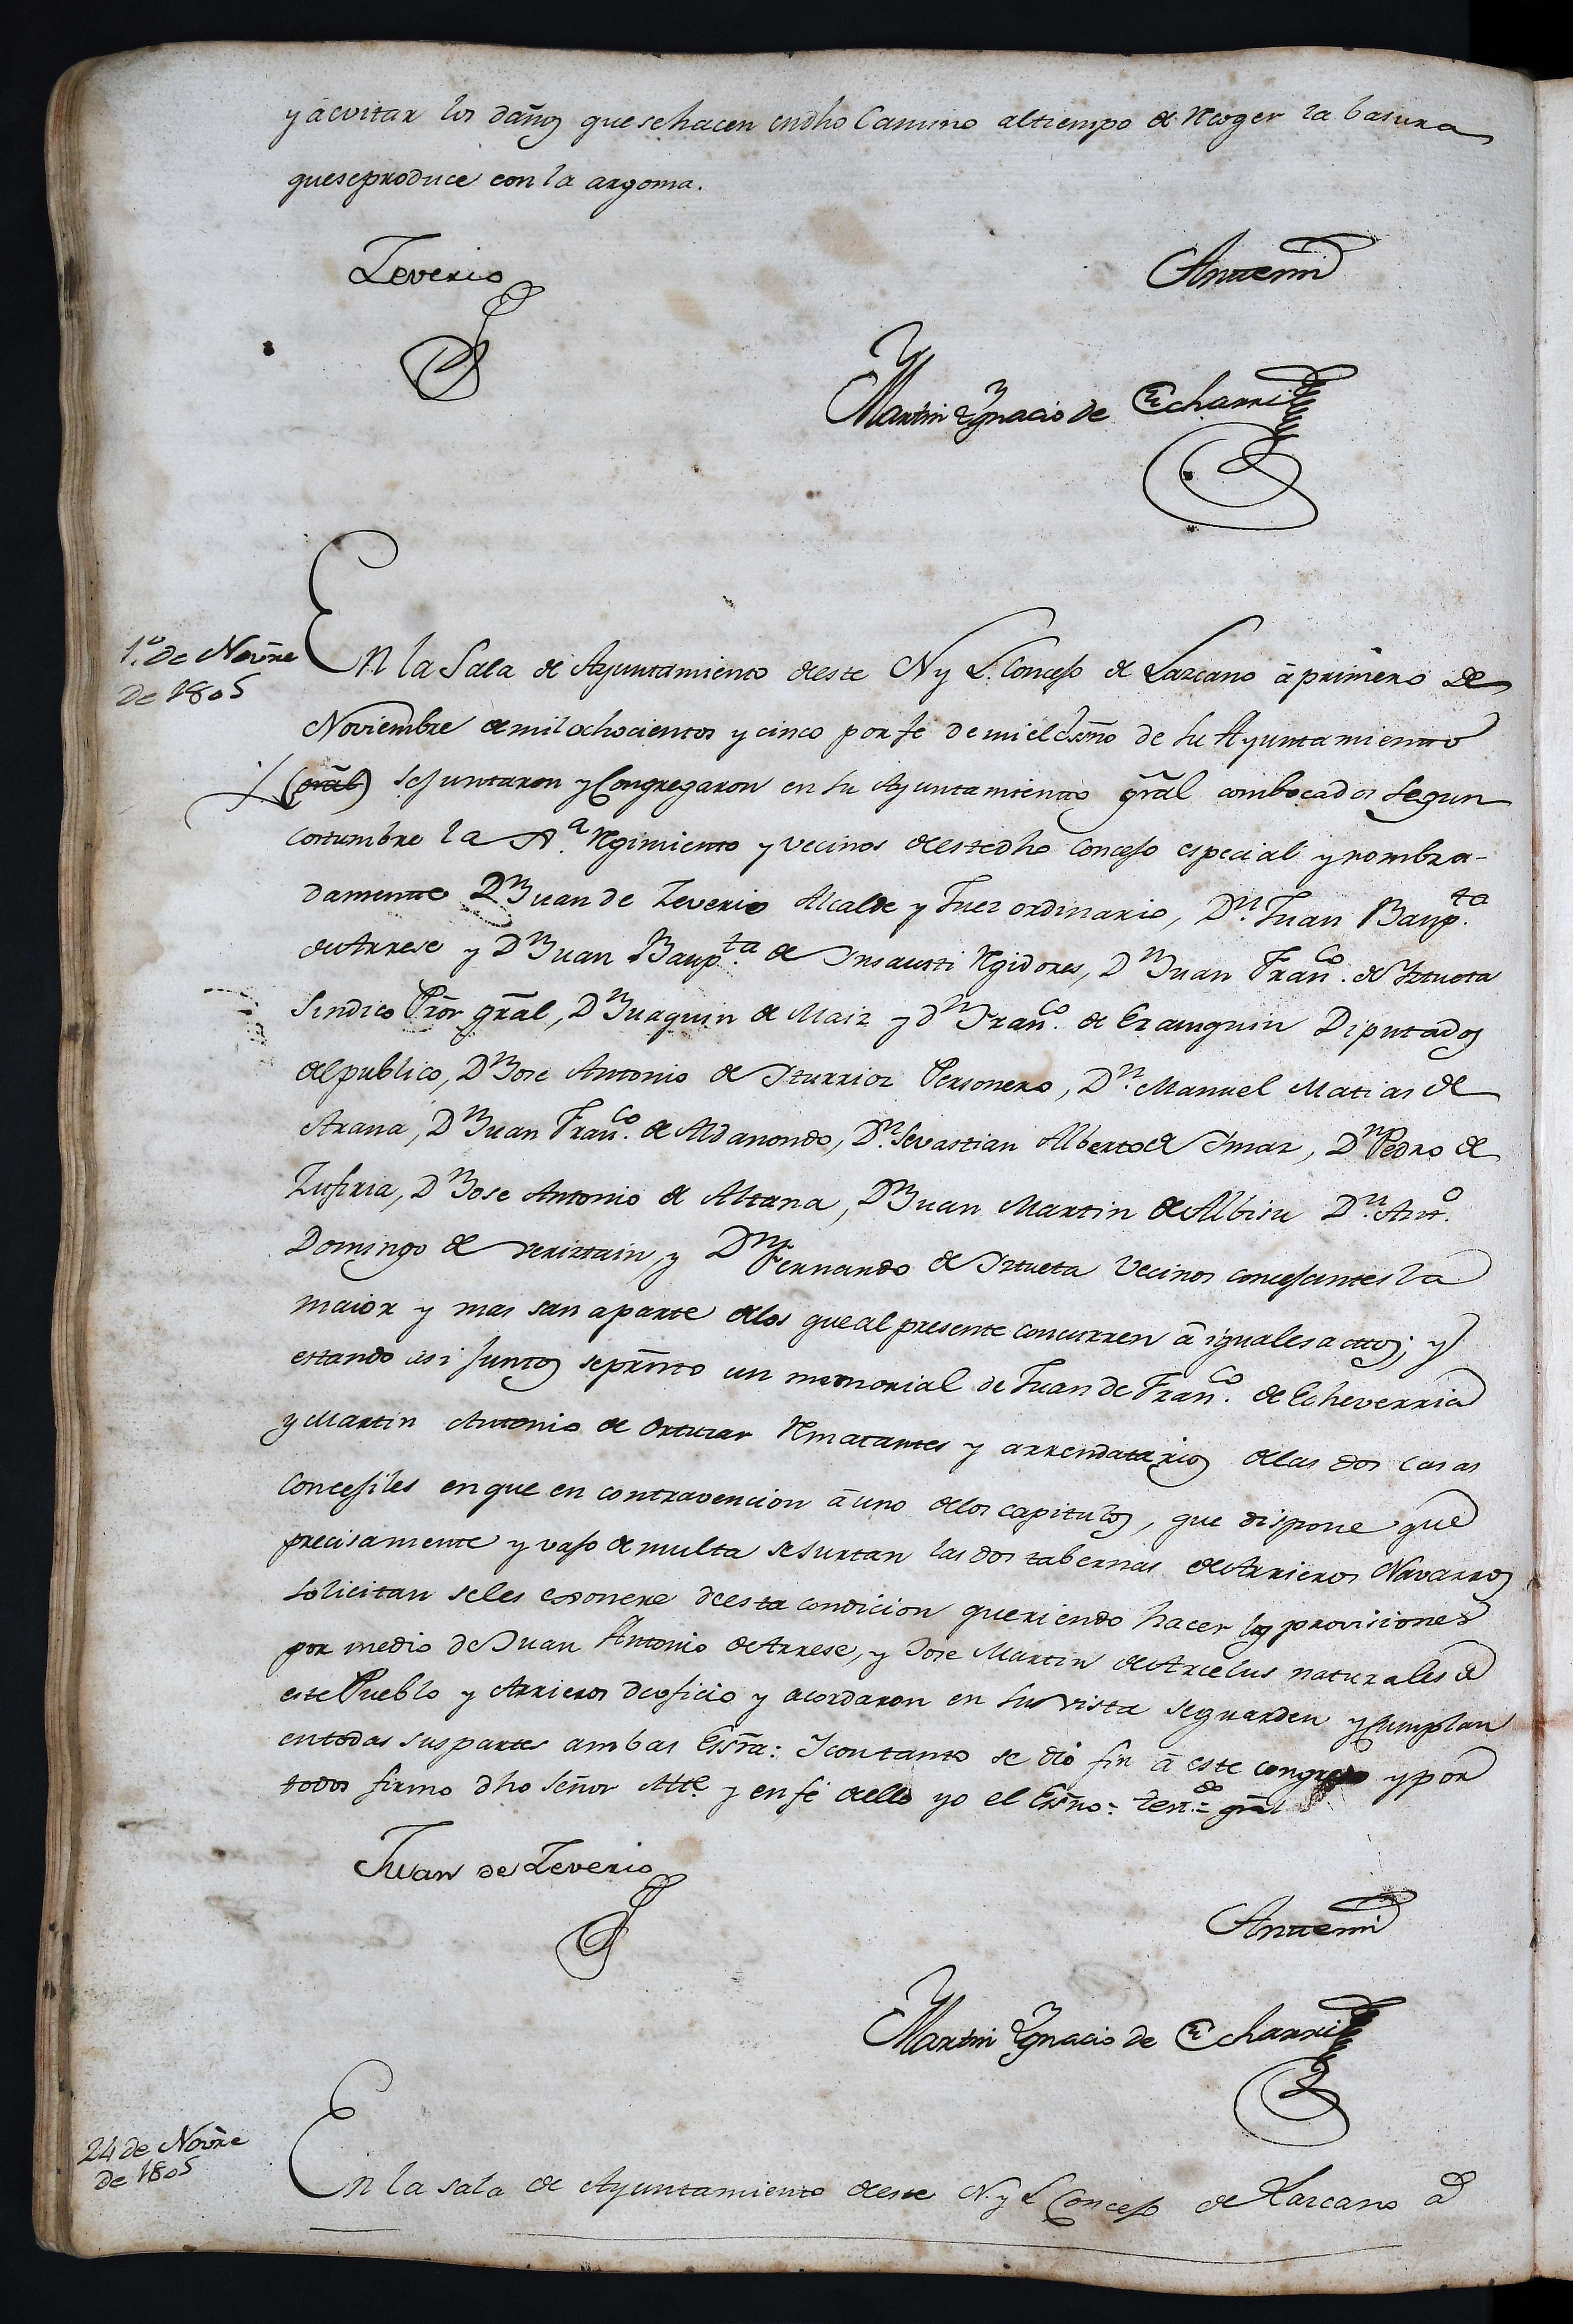 y à evitar los daños que se hacen en dho Camino al tiempo de Recoger la basura
que se produce con la argoma.
Zeverio
Antemi
Martin Ygnacio de Echarri
1.º de Novre
de 1805
En la Sala de Ayuntamiento de este N y L. Concejo de Lazcano à primero de
Noviembre de mil ochocientos y cinco por fe de mi el Esno de su Ayuntamiento
(gral) se juntaron y Congregaron en su Ayuntamiento gral combocados segun
costumbre la Jª. Regimiento y vecinos de este dho Concejo especial y nombra-
damente Dn Juan de Zeverio Alcalde y Juez ordinario, Dn. Juan Baupta.
de Arrese y Dn Juan Baupta. de Insausti Regidores, Dn Juan Franco. de Iztueta
Sindico Pror gral, Dn Juaquin de Maiz y dn Franco. de Erauzquin Diputados
del publico, Dn Jose Antonio de Iturrioz Personero, Dn. Manuel Matias de
Arana, Dn Juan Franco. de Aldanondo, Dn. Sevastian Alberto de Imaz, Dn Pedro de
Zufiria, Dn Jose Antonio de Altana, Dn Juan Martin de Albisu Dn. Anto.
Domingo de veriztain, y Dn Fernando de Iztueta Vecinos concejantes la
maior y mas sana parte de los que al presente concurren à iguales actos; y
estando asi juntos se presento un memorial de Juan de Franco. de Echeverria
y Martin Antonio de Ortuzar Rematantes y arrendatarios de las dos casas
Concejiles en que en contravencion à uno de los capitulos, que dispone que
precisamente y vajo de multa se surtan las dos tabernas de Arrieros Navarros
solicitan se les exonere de esta condicion queriendo hacer las provisiones
por medio de Juan Antonio de Arrese, y Jose Martin de Arcelus naturales de
este Pueblo y Arrieros de oficio y acordaron en su vista se guarden y cumplan
en todas sus partes ambas Essra: Y con tanto se dio fin à este congreso y por
todos firmo dho Señor Alte. y en fé de ello yo el Esno: = gral
Juan de Zeverio
Antemi
Martin Ygnacio de Echarri
24 de Novre
de 1805
En la sala de Ayuntamiento de este N. y L Concejo de Lazcano a